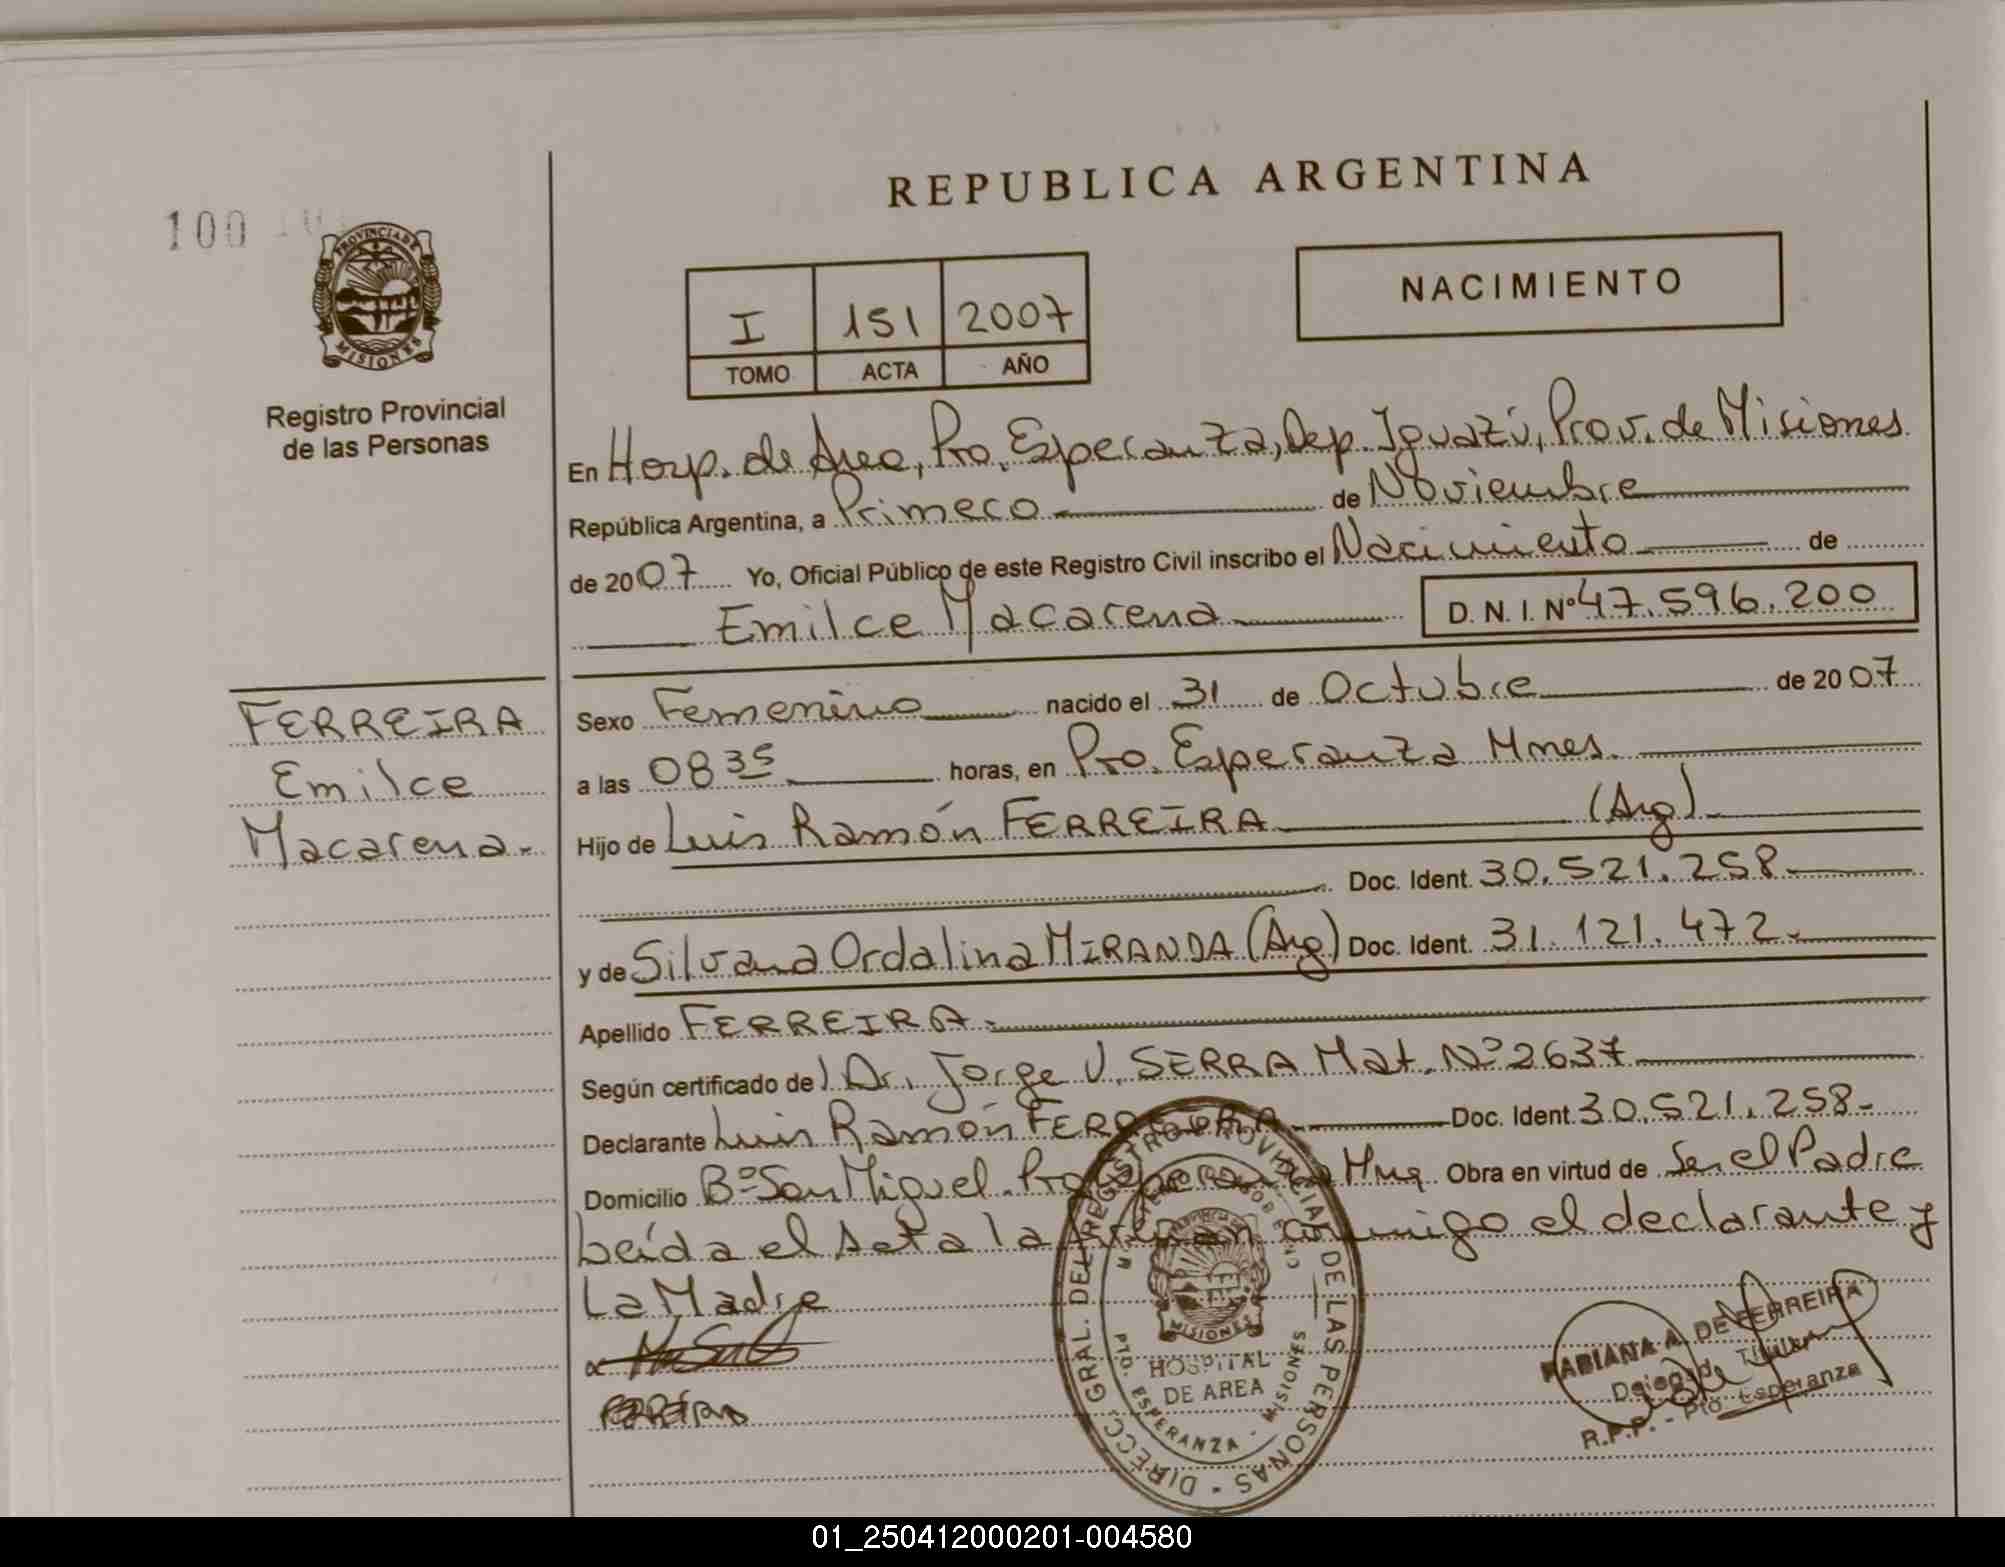 REPUBLICA ARGENTINA
100
PROVINCIA DE
MISIONES
Registro Provincial
de las Personas
I 151 2007
TOMO ACTA AÑO
NACIMIENTO
En Hosp. de Area, Pto. Esperanza, Dep. Iguazú, Prov. de Misiones
República Argentina, a Primero de Noviembre
de 2007 Yo, Oficial Público de este Registro Civil inscribo el Nacimiento de
Emilce Macarena D. N. I. Nº 47.596.200
FERREIRA
Emilce
Macarena.
Sexo Femenino nacido el 31 de Octubre de 2007
a las 08 35 horas, en Pto. Esperanza Mnes.
Hijo de Luis Ramón FERREIRA (Arg)
Doc. Ident. 30.521.258
y de Silvana Ordalina MIRANDA (Arg) Doc. Ident. 31.121.472
Apellido FERREIRA
Según certificado del Dr. Jorge V. SERRA Mat. Nº 2637
Declarante Luis Ramón FERREIRA Doc. Ident. 30.521.258
Domicilio Bº San Miguel. Pto Esperanza Obra en virtud de Ser el Padre
Leída el Acta la firman conmigo el declarante y
La Madre
FERREIRA
DIRECC. GRAL. DEL REGISTRO PROVINCIAL DE LAS PERSONAS
MISIONES
HOSPITAL
DE AREA
PTO. ESPERANZA - MISIONES
FABIANA A. DE FERREIRA
Delegada Titular
R.P.P. - Pto. Esperanza
01_250412000201-004580